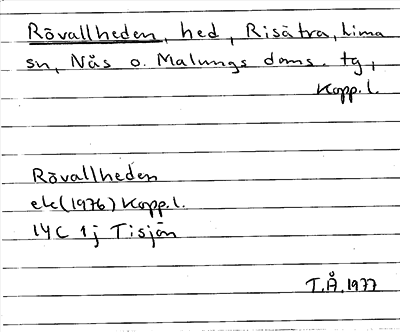 Rövallheden, hed, Risätra, Lima
sn, Nås o. Malungs doms. tg,
Kopp.l.
Rövallheden
ek(1976) Kopp.l.
14C 1j Tisjön
T.Å.1977